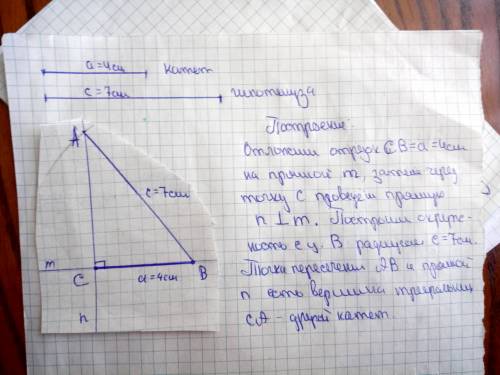 a=4см катет
c=7см гипотенуза
Построение:
Отложим отрезок CB=a=4см
на прямой m, затем через
точку C проведём прямую
n⊥m. Построим окруж-
ность с ц. B радиусом c=7см.
Точка пересечения AB и прямой
n есть вершина треугольника
CA - другой катет.
A
c=7см
m
C
a=4см
B
n